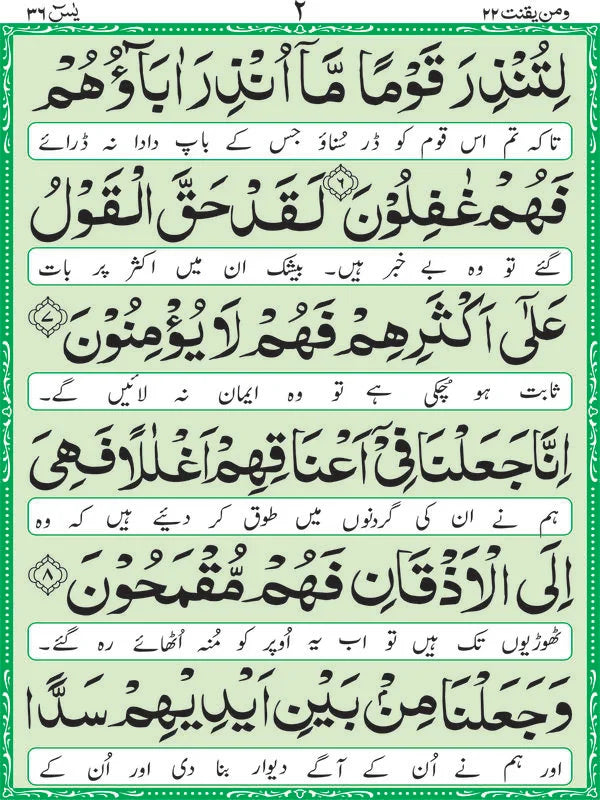 ومن یقنت ۲۲ ۲ یٰسٓ ۳۶
لِتُنْذِرَ قَوْمًا مَّاۤ اُنْذِرَ اٰبَآؤُهُمْ
تاکہ تم اس قوم کو ڈر سُناؤ جس کے باپ دادا نہ ڈرائے
فَهُمْ غٰفِلُوْنَ ۶ لَقَدْ حَقَّ الْقَوْلُ
گئے تو وہ بے خبر ہیں۔ بیشک ان میں اکثر پر بات
عَلٰۤی اَكْثَرِهِمْ فَهُمْ لَا یُؤْمِنُوْنَ ۷
ثابت ہو چُکی ہے تو وہ ایمان نہ لائیں گے۔
اِنَّا جَعَلْنَا فِیْۤ اَعْنَاقِهِمْ اَغْلٰلًا فَهِیَ
ہم نے ان کی گردنوں میں طوق کر دئیے ہیں کہ وہ
اِلَی الْاَذْقَانِ فَهُمْ مُّقْمَحُوْنَ ۸
ٹھوڑیوں تک ہیں تو اب یہ اُوپر کو مُنہ اُٹھائے رہ گئے۔
وَجَعَلْنَا مِنْۢ بَیْنِ اَیْدِیْهِمْ سَدًّا
اور ہم نے اُن کے آگے دیوار بنا دی اور اُن کے